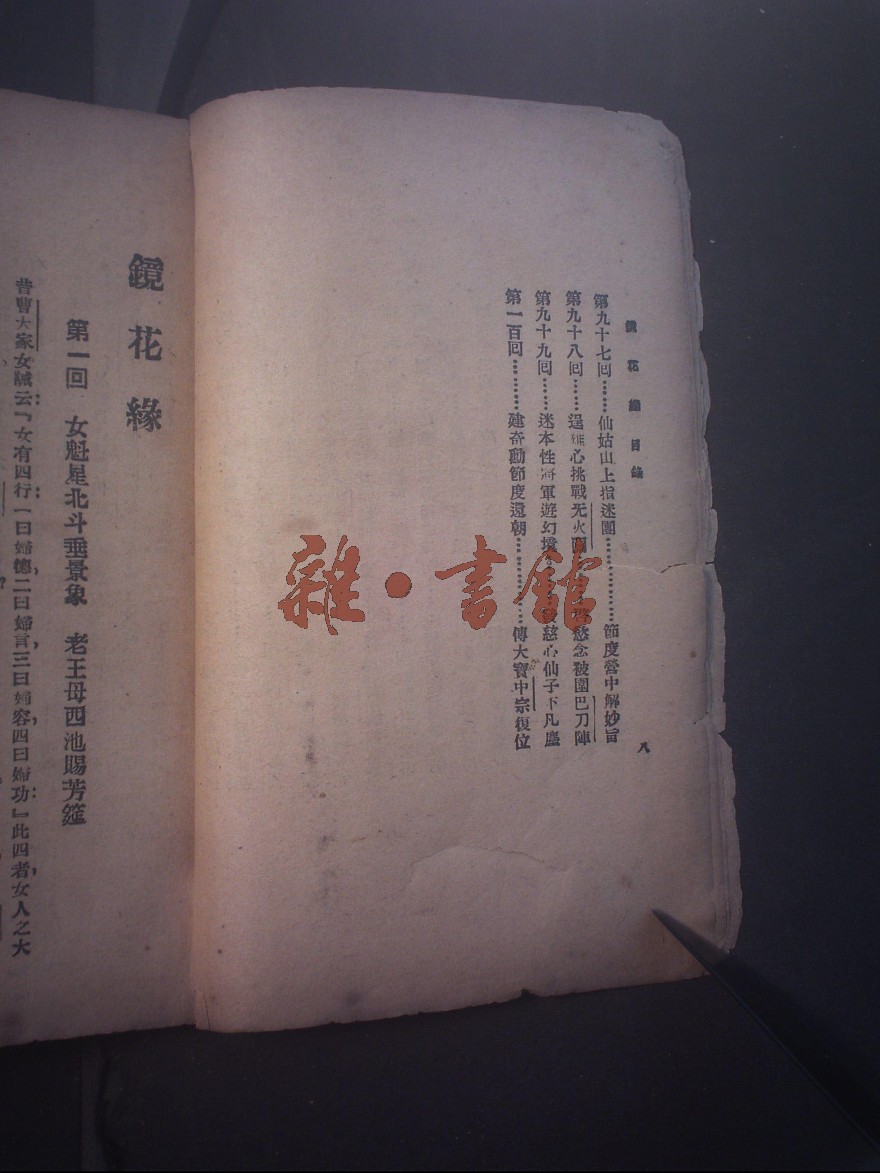 鏡花緣目錄
第九十七回……仙姑山上指迷團………………節度營中解妙旨
第九十八回……逞雄心挑戰无火關 慾念被圍巴刀陣
第九十九回……迷本性將軍遊幻境 發慈心仙子下凡塵
第一百回………建奇勳節度還朝………………傳大寶中宗復位
八
鏡花緣
第一回 女魁星北斗垂景象 老王母西池賜芳筵
昔曹大家女誡云：『女有四行一曰婦德，二曰婦言，三曰婦容，四曰婦功：』此四者，女人之大
雜·書館